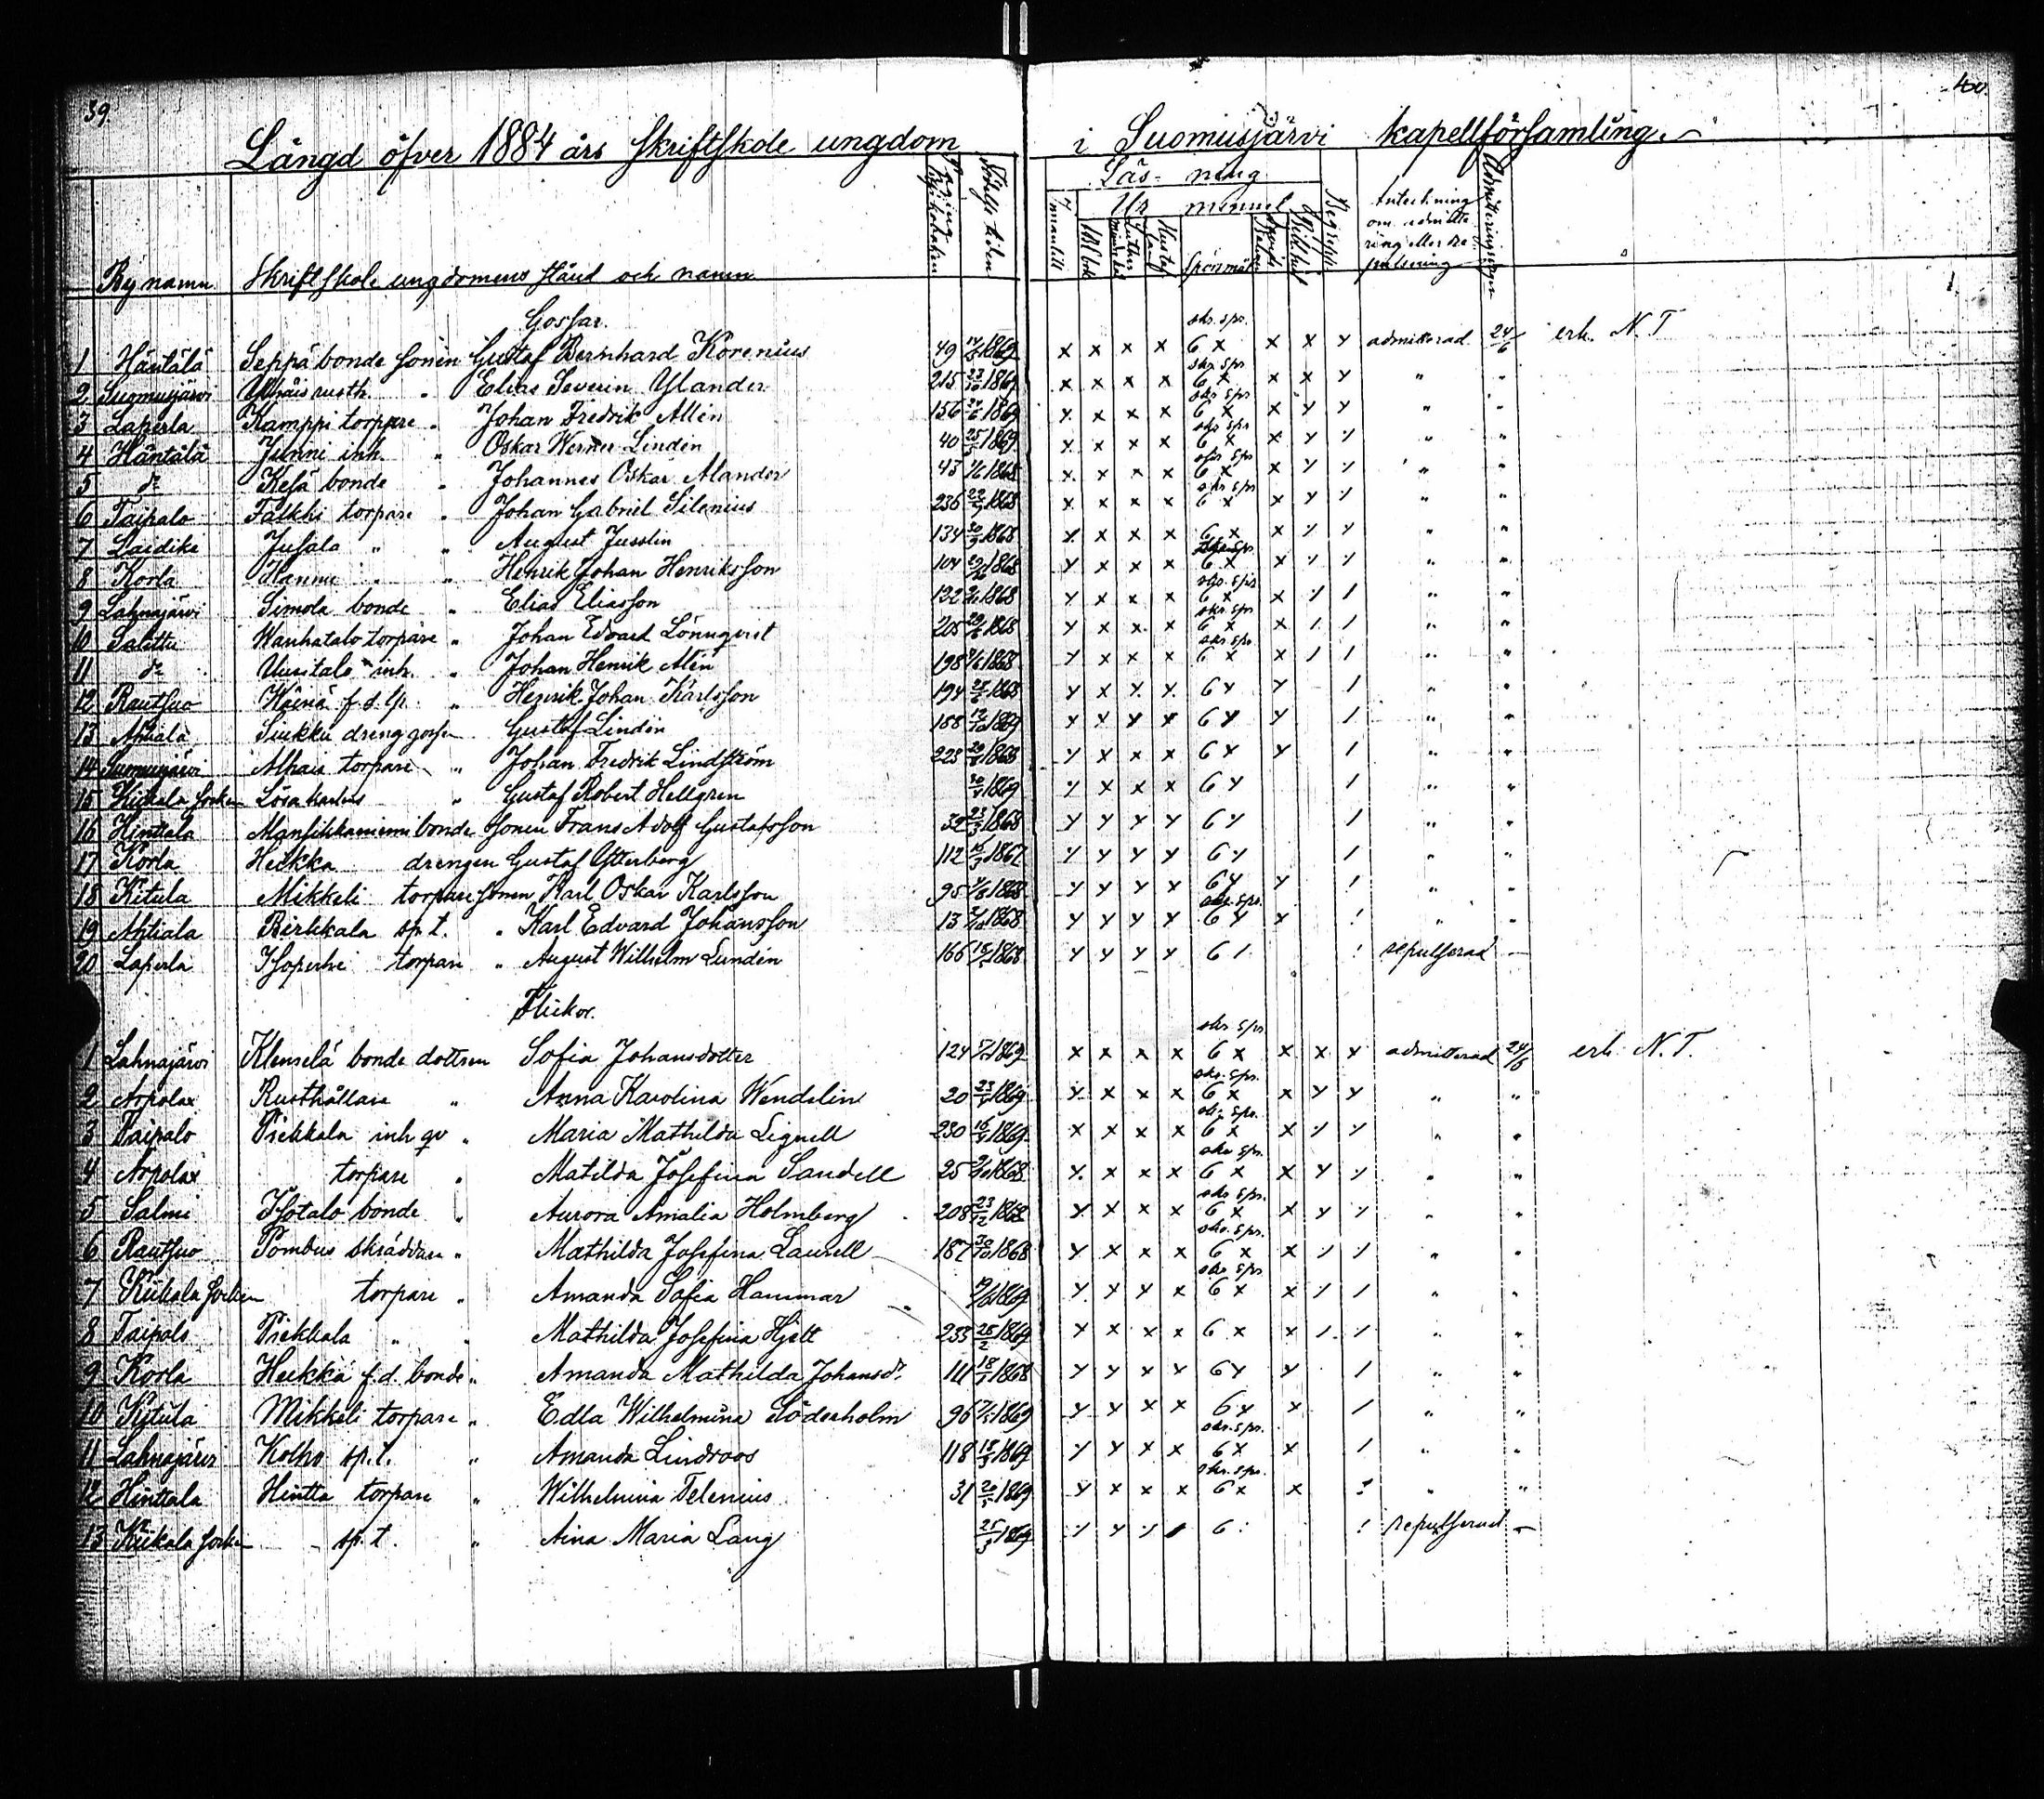 39. 40.
Längd öfver 1884 års Skriftskole ungdom i Suomusjärvi kapellförsamling.
Läs- ning
Ur minnet
By namn Skriftskole ungdomens stånd och namn Födelse tiden Innantill ABC bok Spörsmål Begrepp Anteckning om admitte ring eller re pulsering Admitteringsdagen
Gossar. skr. spr.
1 Häntälä Seppä bonde sonen Gustaf Bernhard Korenius 49 1869 x x x x 6 x x x y admitterad 24/6 erh. N. T
skr spr
2 Suomusjärvi rusth. " Elias Severin Ylander 215 1869 x x x x 6 x x x y " "
skr spr
3 Laperla Kamppi torpare " Johan Fredrik Allén 156 1869 y x x x 6 x x y y " "
skr spr
4 Häntälä Junni inh. " Oskar Werner Lindén 40 25/5 1869 x x x x 6 x x y y " "
skr spr
5 d:o Kesä bonde " Johannes Oskar Alander 43 1868 x x x x 6 x x y y " "
skr spr
6 Taipalo torpare " Johan Gabriel Silenius 236 1868 x x x x 6 x x y y " "
7 Laidike Jusala " " August Jusslin 134 30/9 1868 y x x x 6 x x y y " "
8 Korla Hannu " " Henrik Johan Henriksson 104 1868 y x x x 6 x x y y " "
skr. spr
9 Lahnajärvi Simola bonde " Elias Eliasson 122 1868 y x x x 6 x x y / " "
skr. spr
10 Salittu Wanhatalo torpare " Johan Edvard Lönnqvist 205 1868 y x x x 6 x x / / " "
skr. spr
11 d:o Uusitalo inh. " Johan Henrik Alén 198 1868 y x x x 6 x x / / " "
12 Rautsuo f. d. " Henrik Johan Karlsson 194 1868 y x y y 6 y y / " "
13 Ahtiala Siukku dreng gossen Gustaf Lindén 1869 x y y y 6 y y / " "
14 Suomusjärvi Alhais torpare " Johan Fredrik Lindström 223 1868 y x x x 6 y y / " "
15 Kiikala socken Lösa karlens " Gustaf Robert Hellgren 1869 y x x x 6 y / " "
16 Hintala Mansikkaniemi bonde Sonen Frans Adolf Gustafsson 32 23/3 1868 y y y y 6 y / " "
17 Korla Heikka drengen Gustaf Ytterberg 112 1867 y y y y 6 y / " "
18 Kitula Mikkeli torpare sonen Karl Oskar Karlsson 95 1868 y y y y 6 y y ! " "
skr. spr.
19 Ahtiala Pirkkala sp. t. " Karl Edvard Johansson 13 1868 y y y y 6 y y ! " "
20 Laperla torpare " August Wilhelm Lundén 166 1868 y y y y 6 / ! repulserad —
Flickor.
skr spr
1 Lahnajärvi Klemelä bonde dottren Sofia Johansdotter 124 1869 x x x x 6 x x x y admitterad 24/6 erh. N. T.
skr. spr.
2 Arpolax Rusthållare " Anna Karolina Wendelin 20 1869 y x x x 6 x x y y " "
skr. spr.
3 Taipalo Piekkala inh. qv " Maria Mathilda Lignell 230 1869 x x x x 6 x x y y " "
skr spr.
4 Arpolax torpare " Matilda Josefina Sandell 25 1868 y x x x 6 x x y y " "
skr spr.
5 Salmi Isotalo bonde " Aurora Amalia Holmberg 208 23/12 1868 y x x x 6 x x y y " "
skr. spr.
6 Rautsuo Pombus skräddare " Mathilda Josefina Laurell 187 30/10 1868 y x x x 6 x x / / " "
skr spr
7 Kiikala socken torpare " Amanda Sofia Hammar 1869 y x y x 6 x x y / " "
8 Taipalo Piekkala " " Mathilda Josefina Hjelt 233 28/2 1869 y x x x 6 x x / / " "
9 Korla Heikkä f. d. bonde " Amanda Mathilda Johansd:r 111 1868 y y x y 6 y y / " "
10 Kitula Mikkeli torpare " Edla Wilhelmina Söderholm 96 1869 y y x x 6 y x / " "
skr. spr.
11 Lahnajärvi Kolho sp. t. " Amanda Lindroos 118 1869 y y x x 6 x x / " "
skr. spr.
12 Hintala Hintta torpare " Wilhelmina Telenius 31 20/5 1869 y x x x 6 x x ! " "
13 Kiikala socken sp. t. " Aina Maria Lang 25/3 1869 y y y / 6 : ! repulserad —